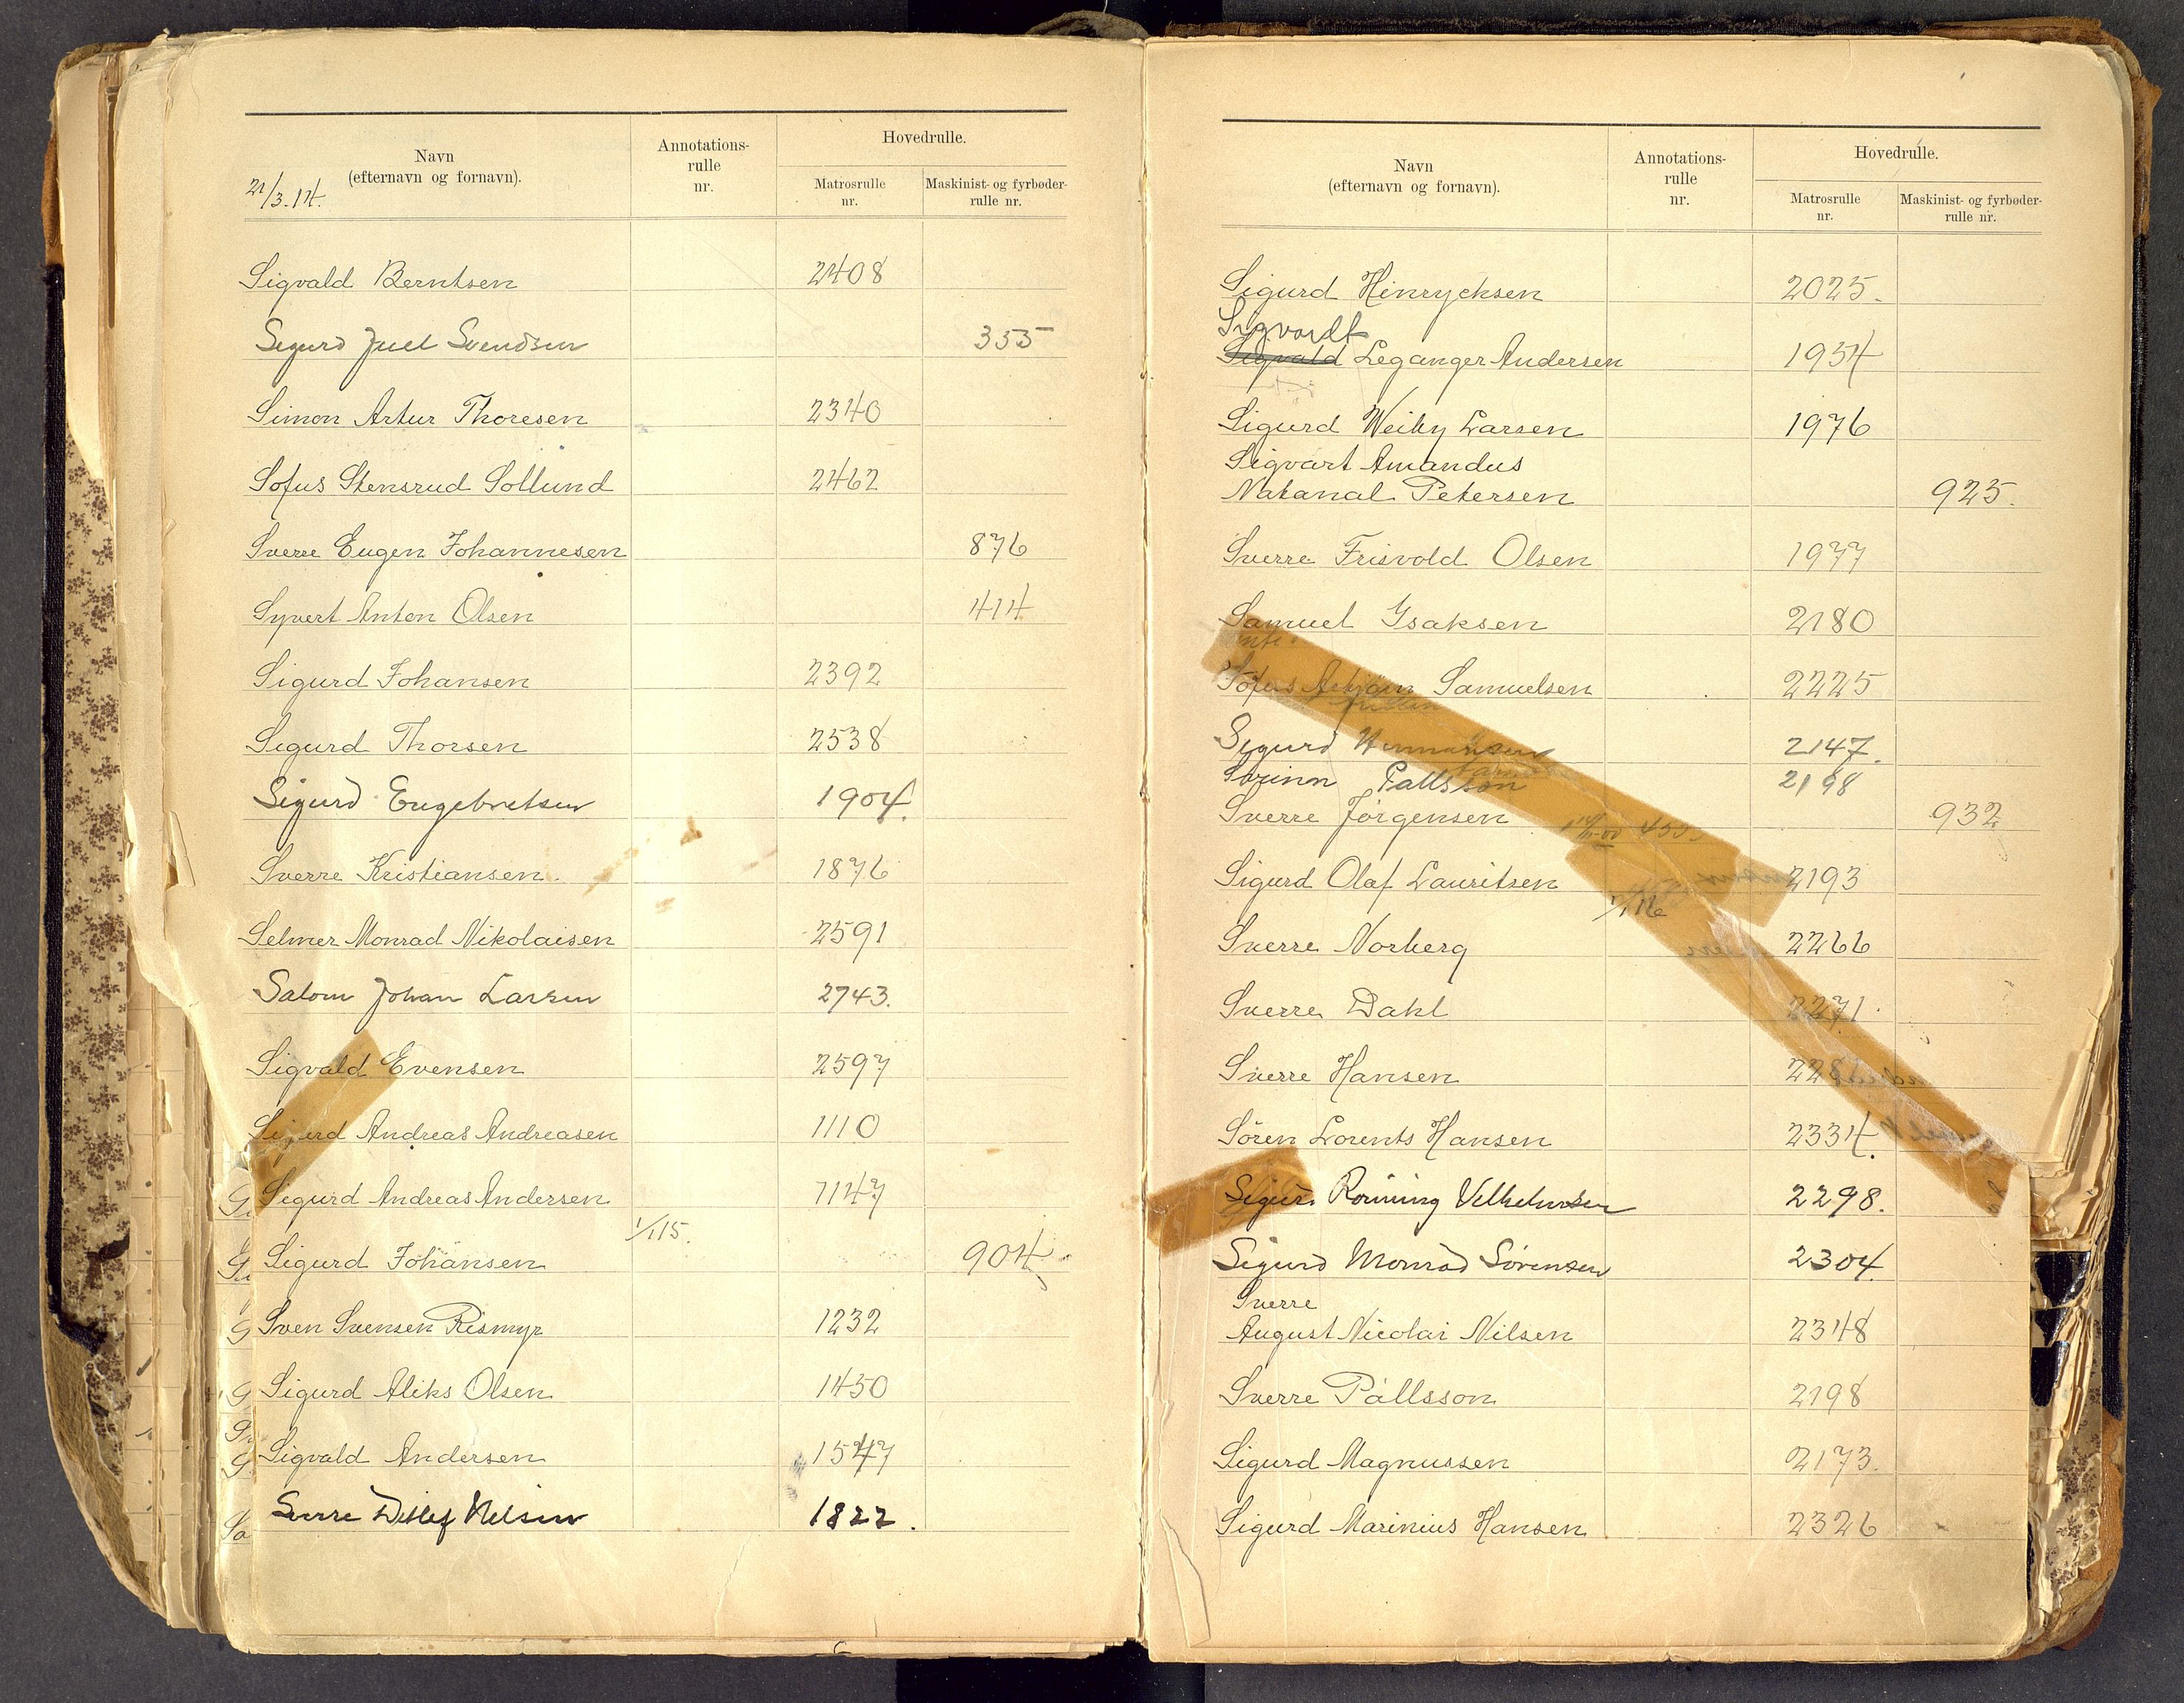 Navn
(efternavn og fornavn).
21/3.14.
Annotations-
rulle
nr.
Hovedrulle.
Matrosrulle
nr.
Maskinist- og fyrbøder-
rulle nr.
Sigvald Berntsen 2408
Sigurd Juel Svendsen 355
Simon Artur Thoresen 2340
Sofus Stensrud Sollund 2462
Sverre Eugen Johannesen 876
Syvert Anton Olsen 414
Sigurd Johansen 2392
Sigurd Thorsen 2538
Sigurd Engebretsen 1904.
Sverre Kristiansen. 1876
Selmer Monrad Nikolaisen 2591
Salom Johan Larsen 2743.
Sigvald Evensen 2597
Sigurd Andreas Andreasen 1110
Sigurd Andreas Andersen 1147
1/1 15.
Sigurd Johansen 904
Sven Svensen Rismyr 1232
Sigurd Aliks Olsen 1450
Sigvald Andersen 1547
Sverre Ditlef Nelsen 1822.
Navn
(efternavn og fornavn).
Annotations-
rulle
nr.
Hovedrulle.
Matrosrulle
nr.
Maskinist- og fyrbøder-
rulle nr.
Sigurd Hinrycksen 2025.
Sigvardt
Sigvald Leganger Andersen 1954
Sigurd Weiby Larsen 1976
Sigvart Amandus
Natanal Petersen 925.
Sverre Frisvold Olsen 1977
Samuel Ysaksen 2180
Sofus Asbjörn Samuelsen 2225
Sigurd Hermansen 2147.
Pallsson 2198
Sverre Jörgensen 932
Sigurd Olaf Lauritsen 2193
1/1 16
Sverre Norberg 2266
Sverre Dahl 2271.
Sverre Hansen
Sören Lorents Hansen 2334.
Sigurd Ronning Vilhelmsen 2298.
Sigurd Monrad Sörensen 2304.
Sverre
August Nicolai Nilsen 2348
Sverre Pállsson 2198
Sigurd Magnussen 2173.
Sigurd Marinius Hansen 2326